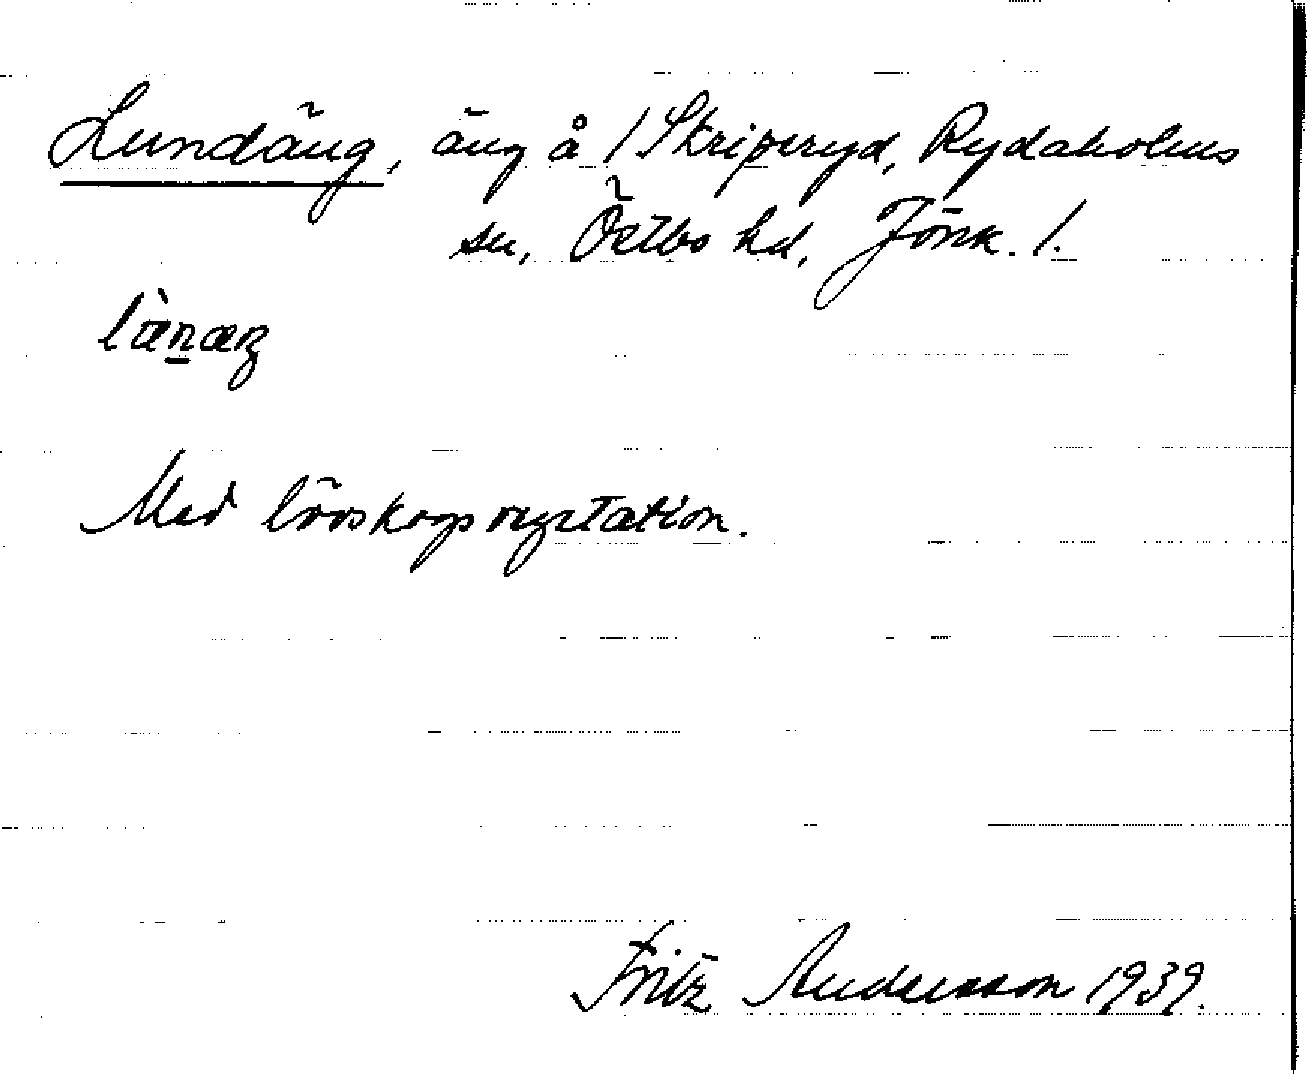 Lundäng, äng å /Skriperyd, Rydaholms
sn, Östbo hd, Jönk. l.
Med lövskogsvegetation.
Fritz Andersson 1939.